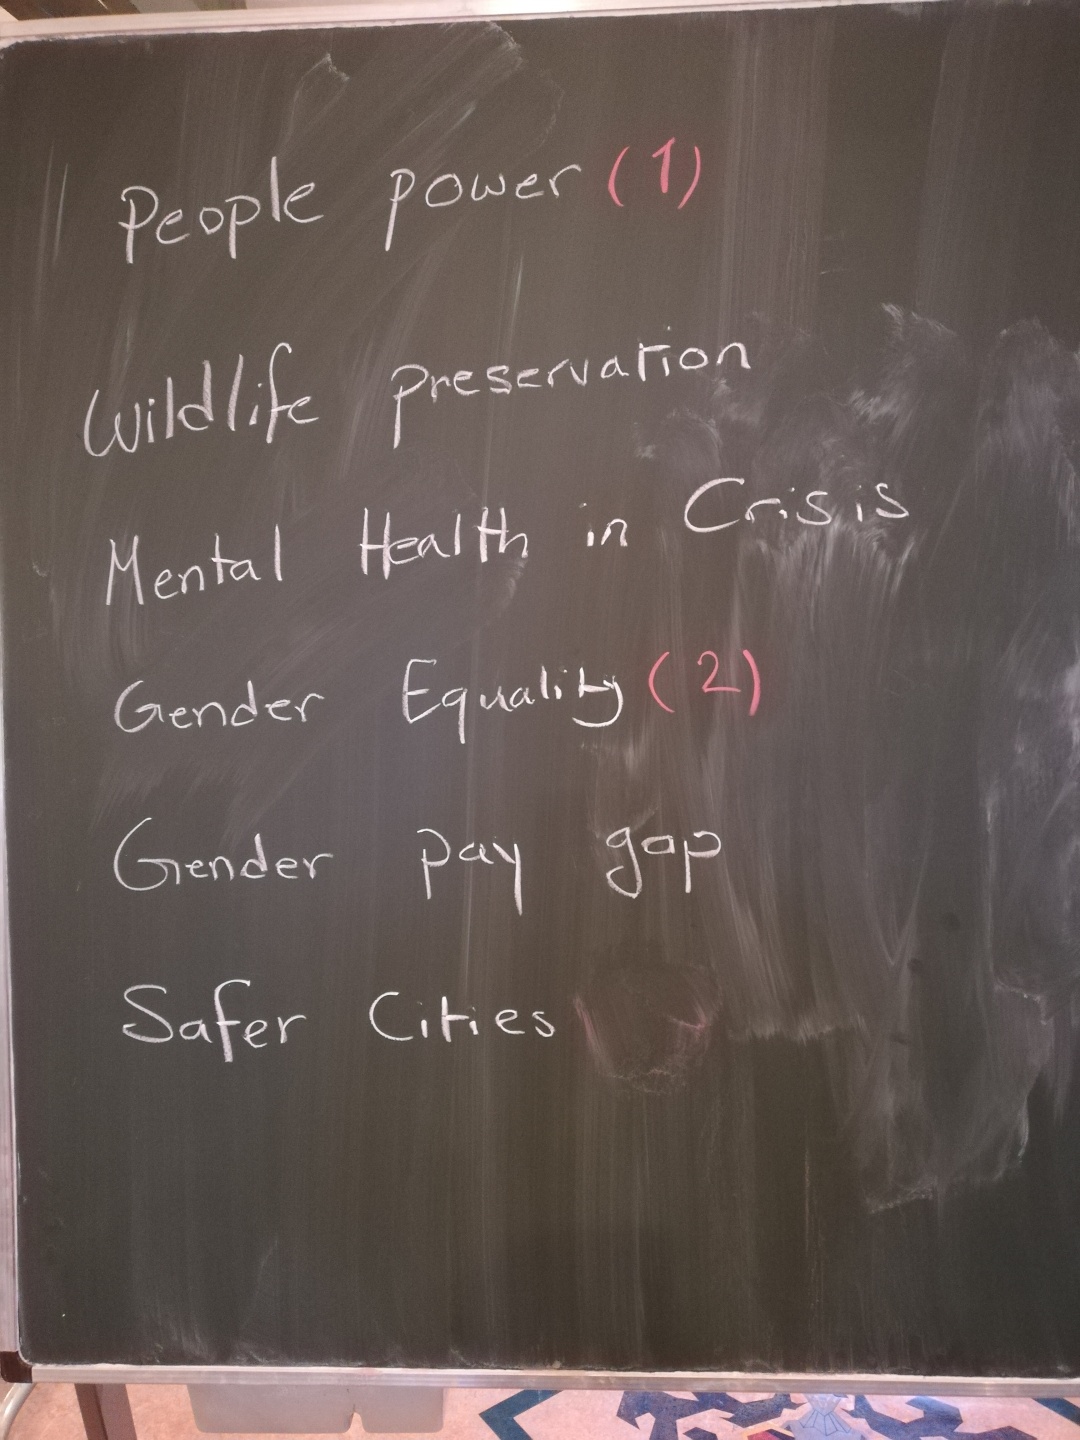 People power (1)
Wildlife preservation
Mental Health in Crisis
Gender Equality (2)
Gender pay gap
Safer Cities